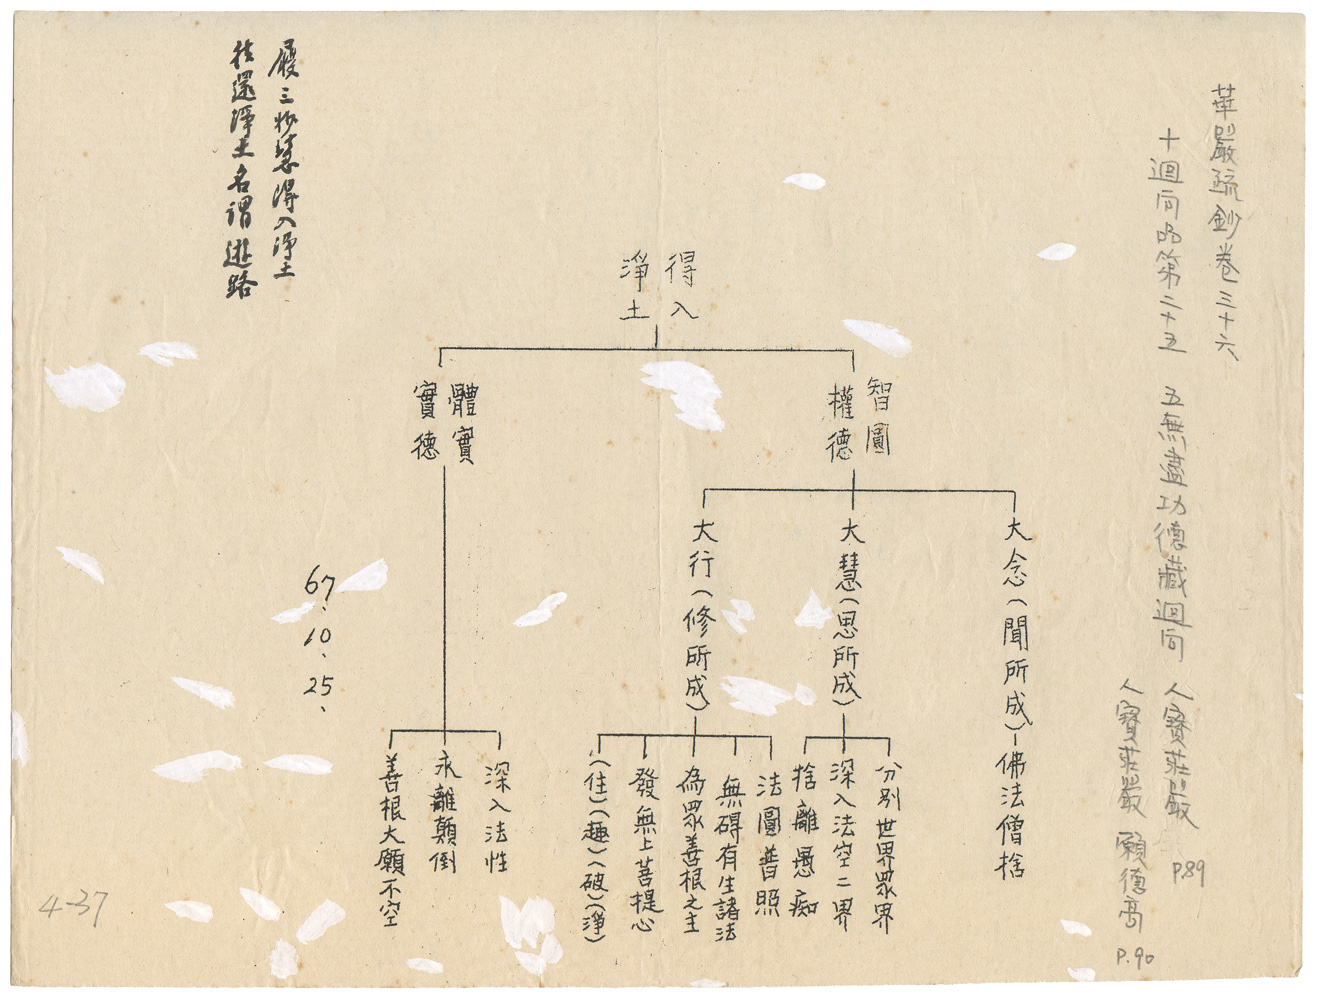 華嚴疏鈔卷三十六
十迴向品第二十五 五無盡功德藏迴向 人寶莊嚴 P.89
人寶莊嚴 願德高 P.90
得入
淨土
智圓
權德
大念(聞所成)-佛法僧捨
大慧(思所成)
分別世界眾界
深入法空二界
捨離愚痴
大行(修所成)
法圓普照
無碍有生諸法
為眾善根之主
發無上菩提心
(住)(趣)(破)(淨)
體實
實德
深入法性
永離顛倒
善根大願不空
67、10、25、
履三妙慧得入淨土
往還淨土名謂遊路
4-37